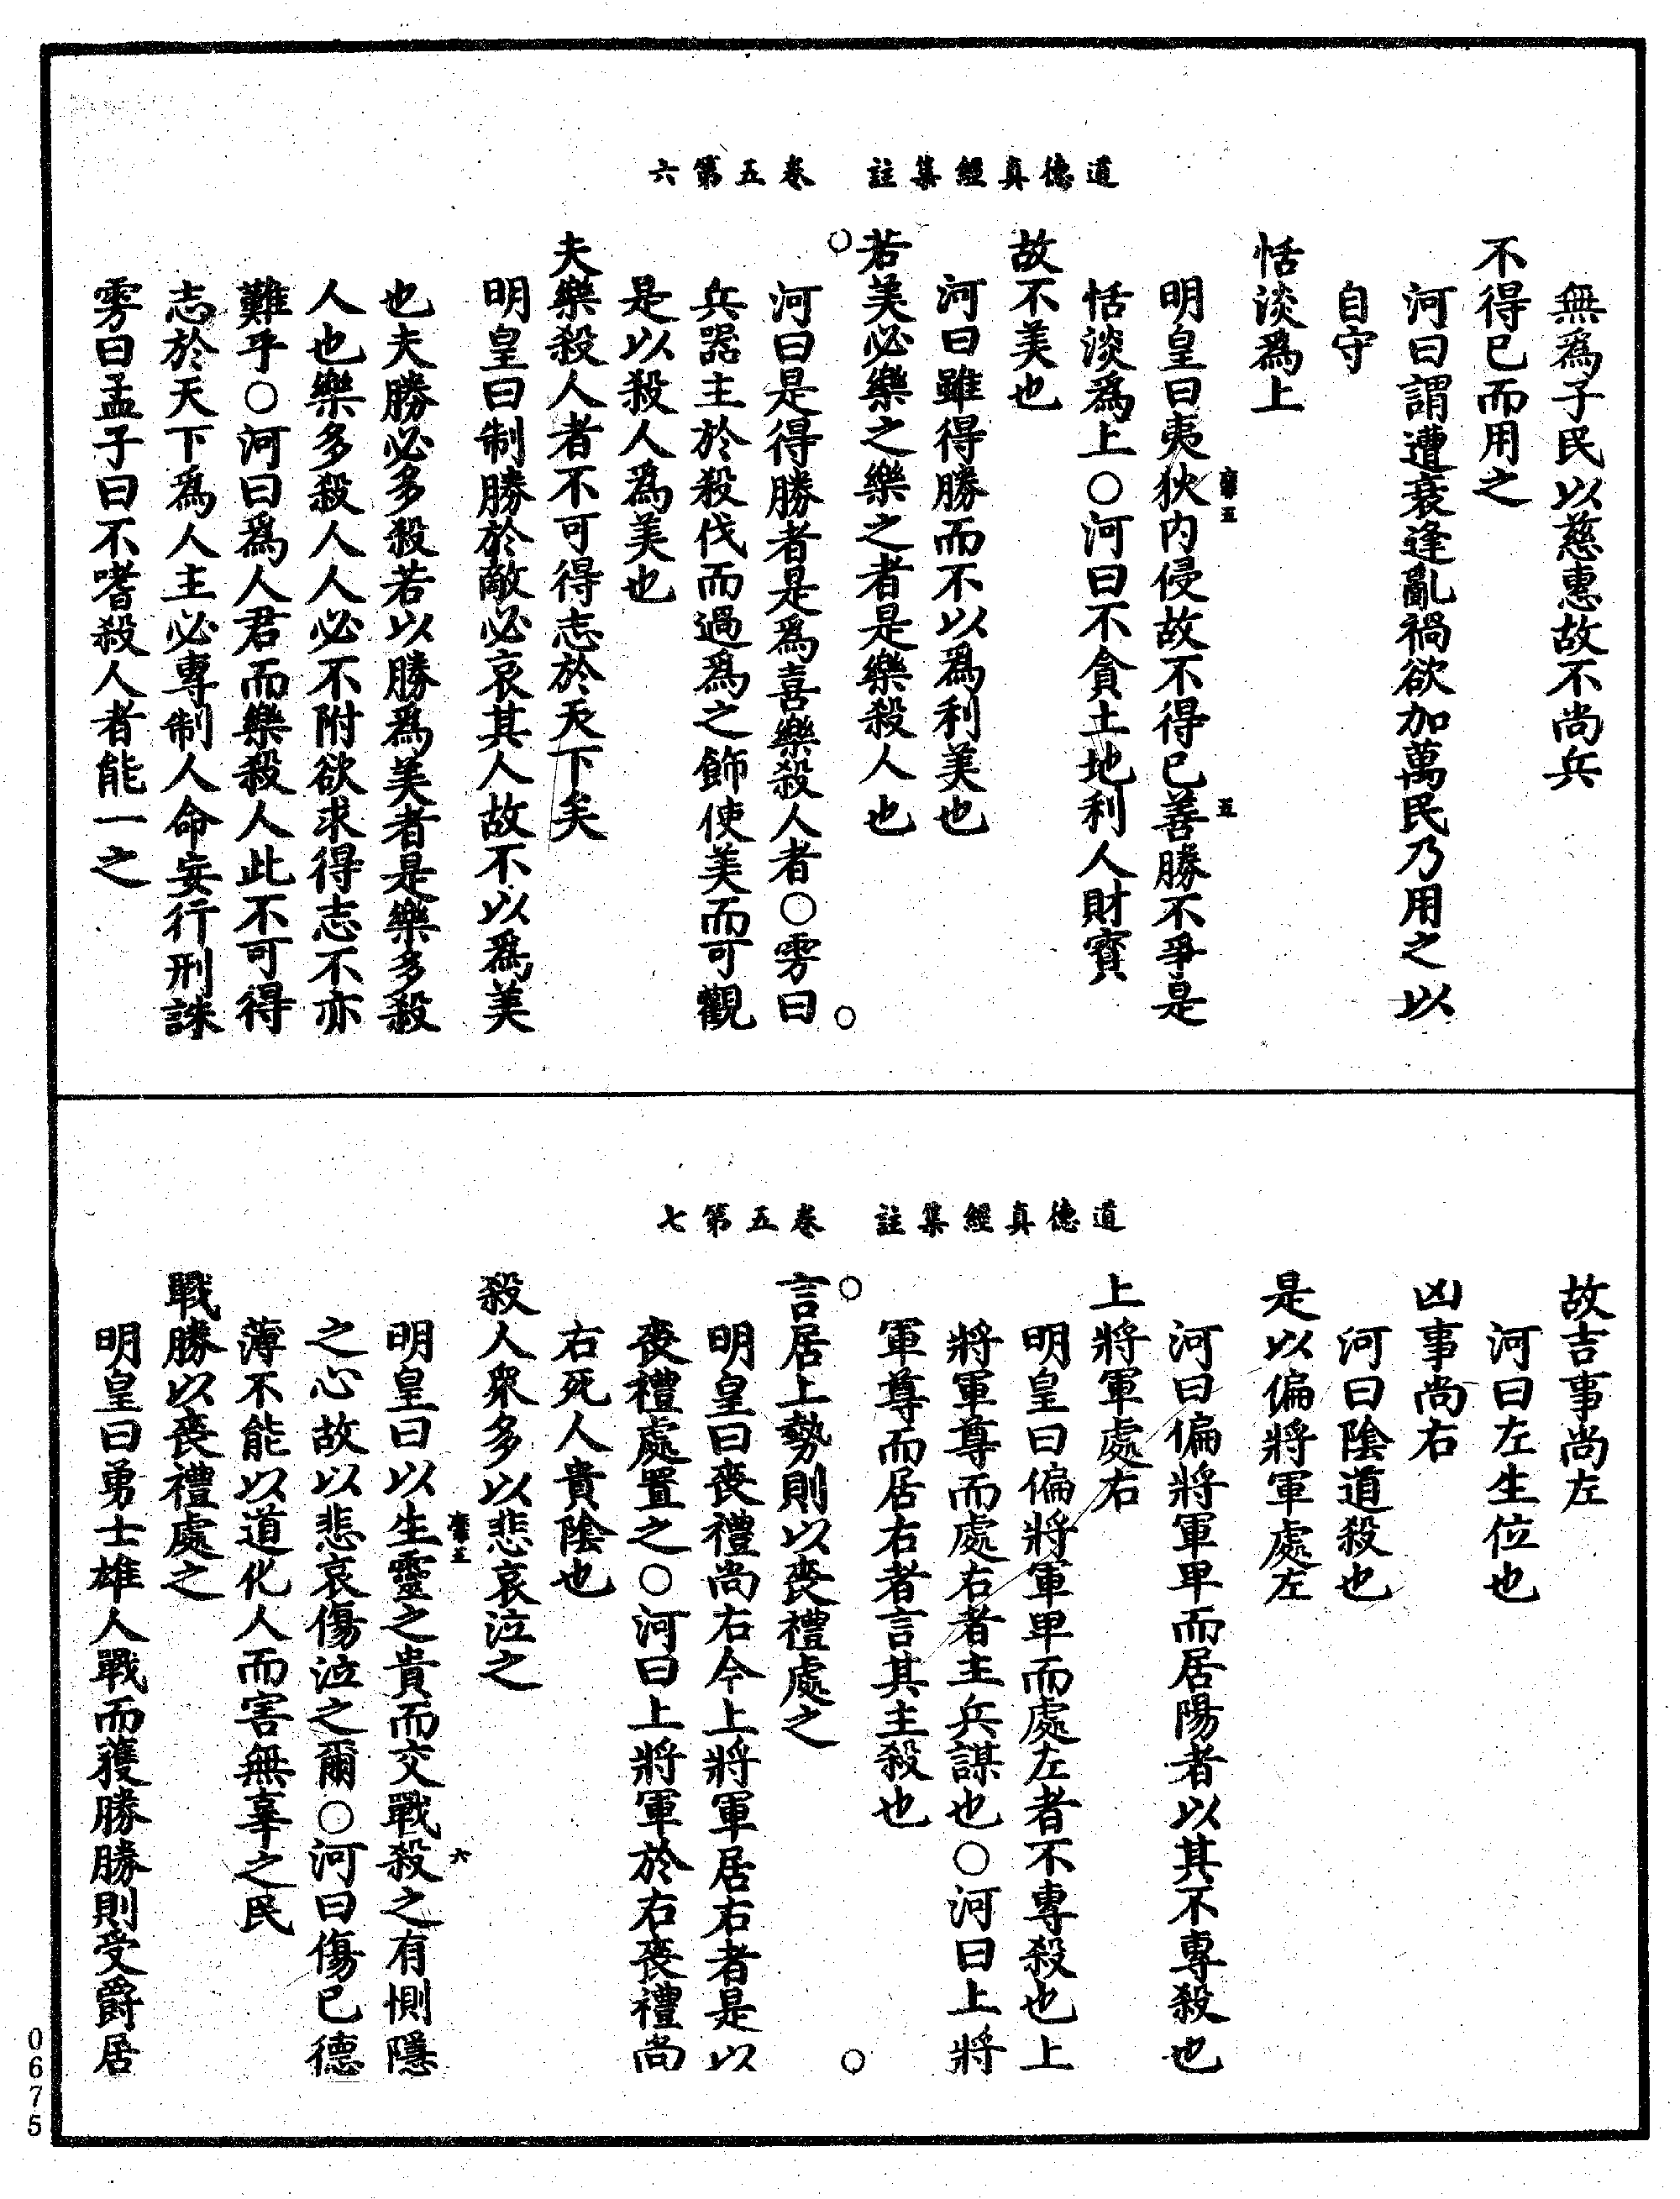 道德真經集註　卷五第六
無爲子民以慈惠故不尚兵
不得已而用之
河曰謂遭衰逢亂禍欲加萬民乃用之以
自守
恬淡爲上
明皇曰夷狄内侵故不得已善勝不爭是
恬淡爲上○河曰不貪土地利人財寳
故不美也
河曰雖得勝而不以爲利美也
若美必樂之樂之者是樂殺人也
河曰是得勝者是爲喜樂殺人者○雱曰
兵器主於殺伐而過爲之飾使美而可觀
是以殺人爲美也
夫樂殺人者不可得志於天下矣
明皇曰制勝於敵必哀其人故不以爲美
也夫勝必多殺若以勝爲美者是樂多殺
人也樂多殺人人必不附欲求得志不亦
難乎○河曰爲人君而樂殺人此不可得
志於天下爲人主必專制人命妄行刑誅
雱曰孟子曰不嗜殺人者能一之
道德真經集註　卷五第七
故吉事尚左
河曰左生位也
凶事尚右
河曰陰道殺也
是以偏將軍處左
河曰偏將軍卑而居陽者以其不專殺也
上將軍處右
明皇曰偏將軍卑而處左者不專殺也上
將軍尊而處右者主兵謀也○河曰上將
軍尊而居右者言其主殺也
言居上勢則以喪禮處之
明皇曰喪禮尚右今上將軍居右者是以
喪禮處置之○河曰上將軍於右喪禮尚
右死人貴陰也
殺人衆多以悲哀泣之
明皇曰以生靈之貴而交戰殺之有惻隱
之心故以悲哀傷泣之爾○河曰傷己德
薄不能以道化人而害無辜之民
戰勝以喪禮處之
明皇曰勇士雄人戰而獲勝勝則受爵居
0675